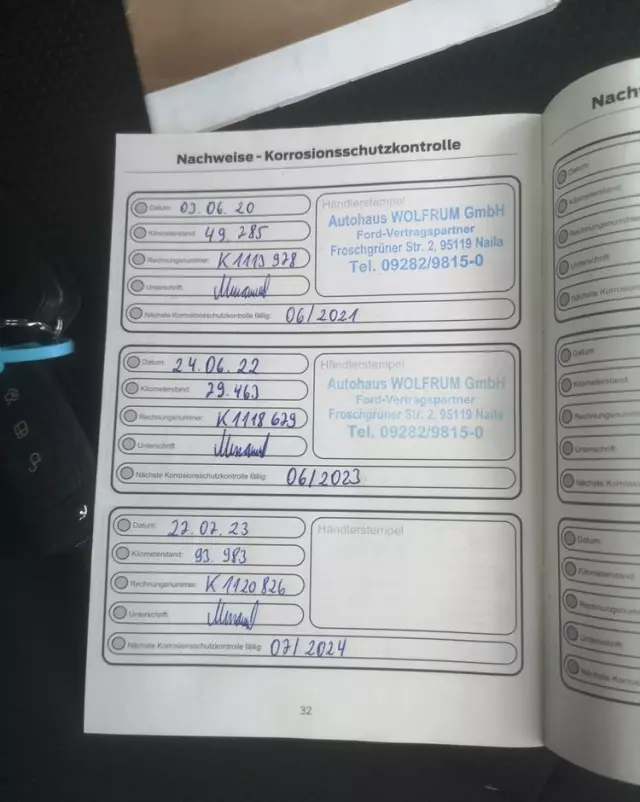 Nachweise - Korrosionsschutzkontrolle
Datum: 03.06.20
Kilometerstand: 49.285
Rechnungsnummer: K1113978
Unterschrift:
Nächste Korrosionsschutzkontrolle fällig: 06/2021
Händlerstempel
Autohaus WOLFRUM GmbH
Ford-Vertragspartner
Froschgrüner Str. 2, 95119 Naila
Tel. 09282/9815-0
Datum: 24.06.22
Kilometerstand: 79.463
Rechnungsnummer: K1118679
Unterschrift:
Nächste Korrosionsschutzkontrolle fällig: 06/2023
Händlerstempel
Autohaus WOLFRUM GmbH
Ford-Vertragspartner
Froschgrüner Str. 2, 95119 Naila
Tel. 09282/9815-0
Datum: 27.07.23
Kilometerstand: 93.983
Rechnungsnummer: K1120826
Unterschrift:
Nächste Korrosionsschutzkontrolle fällig: 07/2024
Händlerstempel
32
Nach
Datum:
Kilometerstand:
Rechnungsnummer
Unterschrift:
Nächste Korrosions
Datum:
Kilometerstand:
Rechnungsnummer
Unterschrift:
Nächste Korrosion
Datum:
Kilometerstand:
Rechnungsnummer
Unterschrift:
Nächste Korrosion